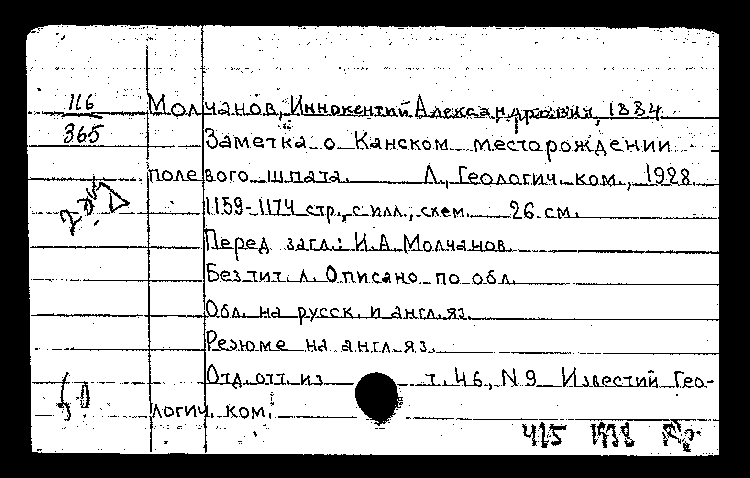 116 Молчанов, Иннокентий Александрович, 1884
365 Заметка о Канском месторождении
полевого шпата. Л., Геологич. ком., 1928.
1159-1174 стр., с илл., схем. 26 см.
2 экз
Перед загл.: И.А. Молчанов.
Без тит. л. Описано по обл.
Обл. на русск. и англ. яз.
Резюме на англ. яз.
Отд. отт. из т. 46, N9 Известий Гео-
логич. ком.